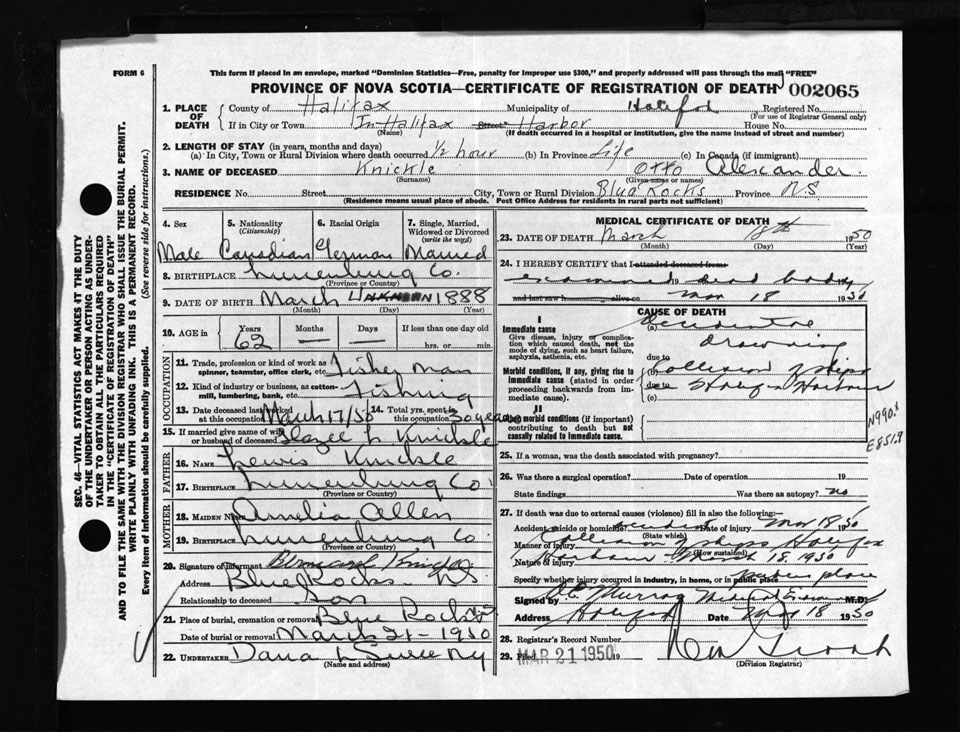 FORM 6
This form if placed in an envelope, marked "Dominion Statistics—Free, penalty for improper use $300," and properly addressed will pass through the mail "FREE"
PROVINCE OF NOVA SCOTIA—CERTIFICATE OF REGISTRATION OF DEATH 002065
SEC. 46—VITAL STATISTICS ACT MAKES IT THE DUTY
OF THE UNDERTAKER OR PERSON ACTING AS UNDER-
TAKER TO OBTAIN ALL THE PARTICULARS REQUIRED
IN THE "CERTIFICATE OF REGISTRATION OF DEATH"
AND TO FILE THE SAME WITH THE DIVISION REGISTRAR WHO SHALL ISSUE THE BURIAL PERMIT.
WRITE PLAINLY WITH UNFADING INK. THIS IS A PERMANENT RECORD.
Every item of information should be carefully supplied. (See reverse side for instructions.)
1. PLACE OF DEATH
County of Halifax Municipality of Registered No.
(For use of Registrar General only)
If in City or Town In Halifax Street Harbor House No.
(Name) (If death occurred in a hospital or institution, give the name instead of street and number)
2. LENGTH OF STAY (in years, months and days)
(a) In City, Town or Rural Division where death occurred 1/2 hour (b) In Province Life (c) In Canada (if immigrant)
3. NAME OF DECEASED Knickle Otto Alexander
(Surname) (Given name or names)
RESIDENCE No. Street City, Town or Rural Division Blue Rocks Province N.S.
(Residence means usual place of abode. Post Office Address for residents in rural parts not sufficient)
4. Sex
Male
5. Nationality
(Citizenship)
Canadian
6. Racial Origin
German
7. Single, Married, Widowed or Divorced
(write the word)
Married
8. BIRTHPLACE Lunenburg Co.
(Province or Country)
9. DATE OF BIRTH March UNKNOWN 1888
(Month) (Day) (Year)
10. AGE in Years Months Days If less than one day old
62 — — hrs. or min.
OCCUPATION
11. Trade, profession or kind of work as spinner, teamster, office clerk, etc. Fisherman
12. Kind of industry or business, as cotton-mill, lumbering, bank, etc. Fishing
13. Date deceased last worked at this occupation March 17/50
14. Total yrs. spent in this occupation 50 years
15. If married give name of wife or husband of deceased L Knickle
FATHER
16. NAME Lewis Knickle
17. BIRTHPLACE Lunenburg Co.
(Province or Country)
MOTHER
18. MAIDEN NAME Amelia Allen
19. BIRTHPLACE Lunenburg Co.
(Province or Country)
20. Signature of informant Knickle
Address Blue Rocks N.S.
Relationship to deceased Son
21. Place of burial, cremation or removal Blue Rocks
Date of burial or removal March 21 - 1950
22. UNDERTAKER Dana L Sweeny
(Name and address)
MEDICAL CERTIFICATE OF DEATH
23. DATE OF DEATH March 18th 1950
(Month) (Day) (Year)
24. I HEREBY CERTIFY that I attended deceased from
examined dead body 19
and last saw h alive on Mar 18 1950
CAUSE OF DEATH
I
Immediate cause
Give disease, injury or complication which caused death, not the mode of dying, such as heart failure, asphyxia, asthenia, etc.
(a) Accidental
drowning
due to
Morbid conditions, if any, giving rise to immediate cause (stated in order proceeding backwards from immediate cause).
(b) Collision of ships
due to Halifax Harbour
(c)
II
Other morbid conditions (if important) contributing to death but not causally related to immediate cause.
N990.x
E851.9
25. If a woman, was the death associated with pregnancy?
26. Was there a surgical operation? Date of operation 19
State findings Was there an autopsy? no
27. If death was due to external causes (violence) fill in also the following:
Accident, suicide or homicide? accident Date of injury Mar 18 1950
(State which)
Manner of injury Collision of ships Halifax
(How sustained)
Nature of injury Harbour March 18. 1950
Specify whether injury occurred in industry, in home, or in public place public place
Signed by Murray Medical Examiner M.D.
Address Halifax Date Mar 18 1950
28. Registrar's Record Number
29. Filed MAR 21 1950 19
(Division Registrar)